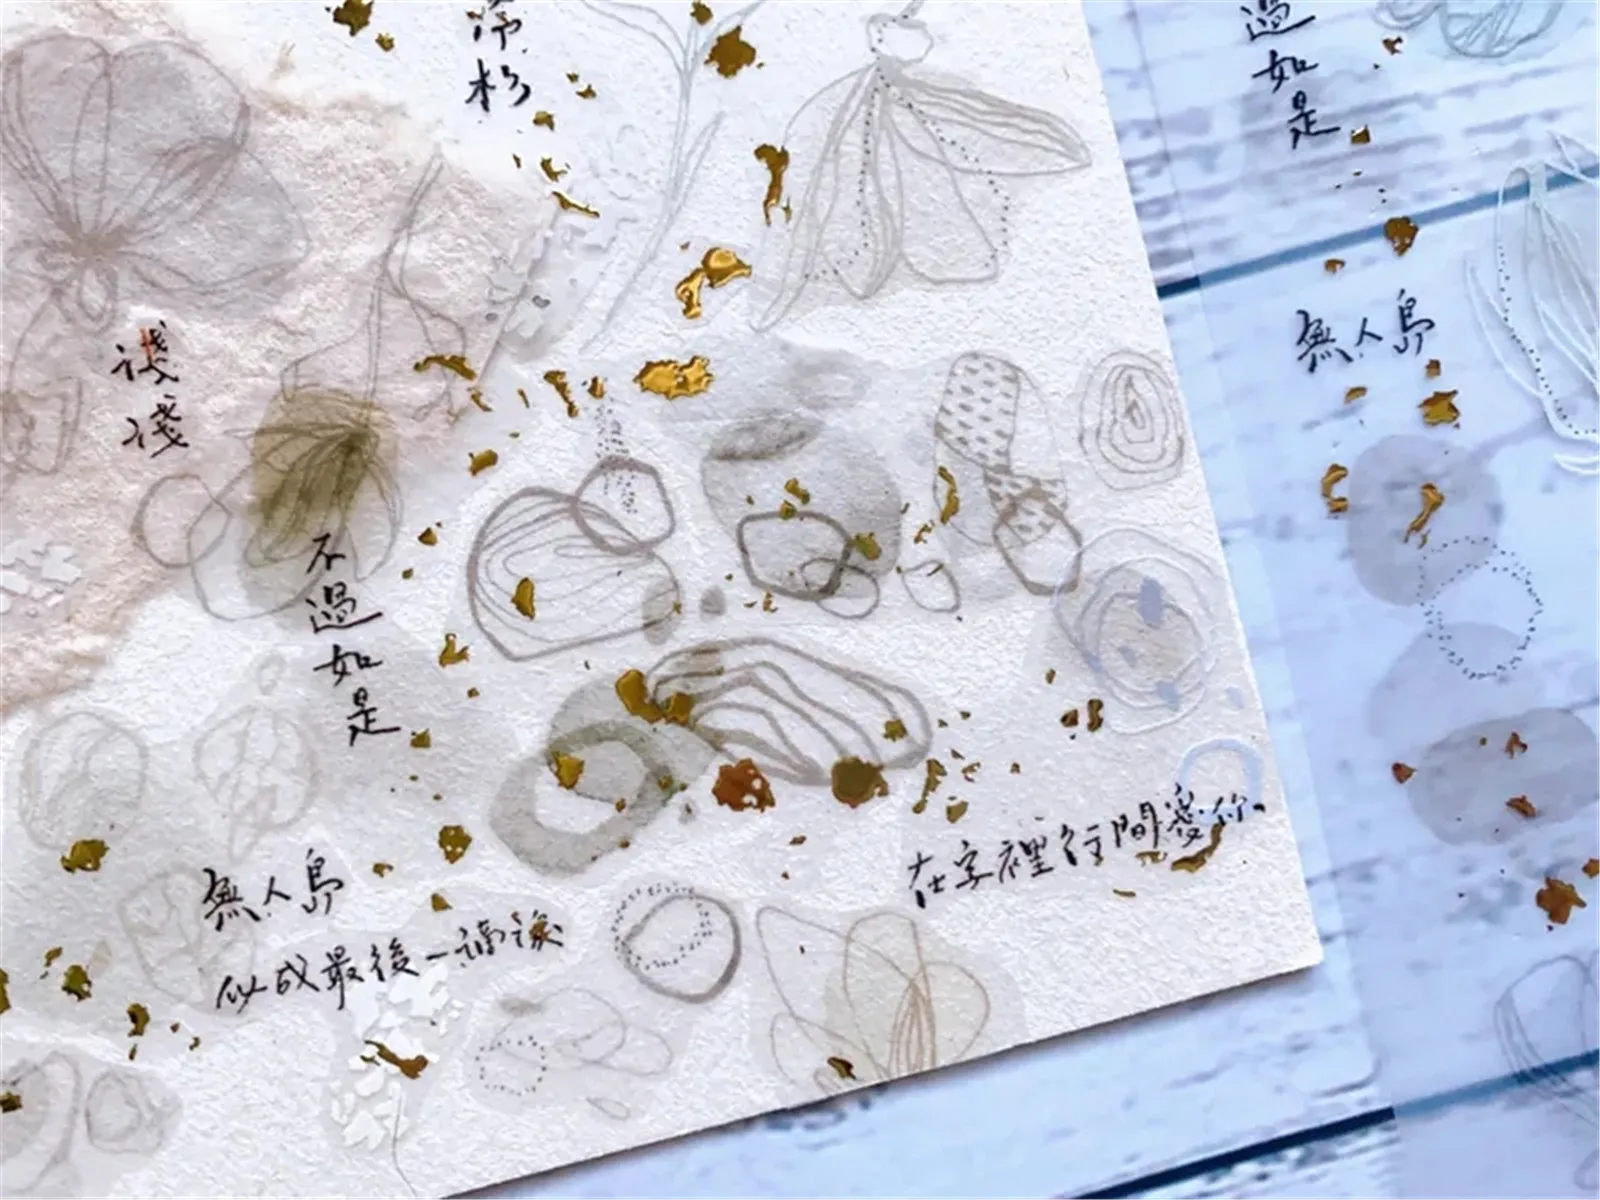 杉
淺淺
不過如是
無人島
似成最後一滴
在字裡行間愛你。
過如是
無人島